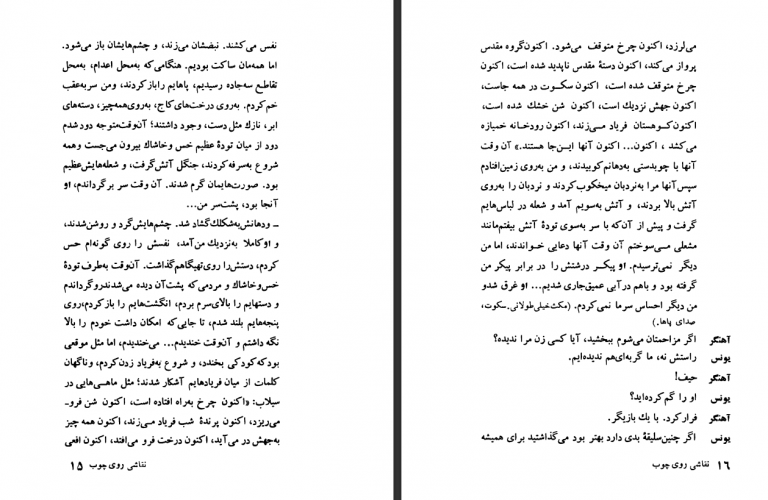 نفس می‌کشند. نبضشان می‌زند، و چشم‌هایشان باز می‌شود.
اما همه‌مان ساکت بودیم. هنگامی‌که به‌محل اعدام، به‌محل
تقاطع سه‌جاده رسیدیم، پاهایم را باز کردند، و من سر به‌عقب
خم کردم. به‌روی درخت‌های کاج، به‌روی همه‌چیز، دسته‌های
ابر، نازك مثل دست، وجود داشتند؛ آن‌وقت متوجه دود شدم
دود از میان تودهٔ عظیم خس وخاشاك بیرون می‌جست وهمه
شروع به‌سرفه کردند، جنگل آتش گرفت، و شعله‌هایش عظیم
بود. صورت‌هایمان گرم شدند. آن وقت سر برگرداندم، او
آنجا بود، پشت‌سر من...
ــ ودهانش به‌شکلك گشاد شد. چشم‌هایش گرد و روشن شدند،
و او کاملا به‌نزدیك من آمد، نفسش را روی گونه‌ام حس
کردم، دستش را روی تهیگاهم گذاشت. آن‌وقت به‌طرف تودهٔ
خس‌وخاشاك و مردمی‌که پشت‌آن دیده می‌شدند رو گرداندم
و دستهایم را بالای سرم بردم، انگشت‌هایم را باز کردم، روی
پنجه‌هایم بلند شدم، تا جایی‌که امکان داشت خودم را بالا
نگه داشتم و آن‌وقت خندیدم... می‌خندیدم، اما مثل موقعی
بود که کودکی بخندد، و شروع به‌فریاد زدن کردم، و ناگهان
کلمات از میان فریادهایم آشکار شدند؛ مثل ماهی‌هایی در
سیلاب: «اکنون چرخ به‌راه افتاده است، اکنون شن فرو-
می‌ریزد، اکنون پرندهٔ شب فریاد می‌زند، اکنون همه چیز
به‌جهش در می‌آید، اکنون درخت فرو می‌افتد، اکنون افعی
نقاشی روی چوب ۱۵
می‌لرزد، اکنون چرخ متوقف می‌شود. اکنون‌گروه مقدس
پرواز می‌کند، اکنون دستهٔ مقدس ناپدید شده است، اکنون
چرخ متوقف شده است، اکنون سکوت در همه جاست،
اکنون جهش نزدیك است، اکنون شن خشك شده است،
اکنون‌کوهستان فریاد می‌زند، اکنون رودخانه خمیازه
می‌کشد ، اکنون... اکنون آنها این‌جا هستند.» آن وقت
آنها با چوبدستی به‌دهانم کوبیدند، و من به‌روی زمین‌افتادم
سپس‌آنها مرا به‌نردبان میخکوب کردند و نردبان را به‌روی
آتش بالا بردند، و آتش به‌سویم آمد و شعله در لباس‌هایم
گرفت و پیش از آن‌که با سر به‌سوی تودهٔ آتش بیفتم‌مانند
مشعلی می‌سوختم آن وقت آنها دعایی خواندند، اما من
دیگر نمی‌ترسیدم. او پیکر درشتش را در برابر پیکر من
گرفته بود و باهم درآبی عمیق‌جاری شدیم... او غرق شدو
من دیگر احساس سرما نمی‌کردم. (مکث‌خیلی‌طولانی.سکوت،
صدای پاها.)
آهنگر اگر مزاحمتان می‌شوم ببخشید، آیا کسی زن مرا ندیده؟
یونس راستش نه، ما گربه‌ای‌هم ندیده‌ایم.
آهنگر حیف!
یونس او را گم کرده‌اید؟
آهنگر فرار کرد. با یك بازیگر.
یونس اگر چنین‌سلیقهٔ بدی دارد بهتر بود می‌گذاشتید برای همیشه
۱۶ نقاشی روی چوب